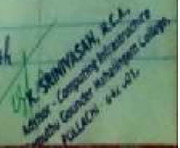 K. SRINIVASAN, M.C.A.,
Advisor - Computing Infrastructure
Gounder Mahalingam College,
POLLACHI - 642 001.